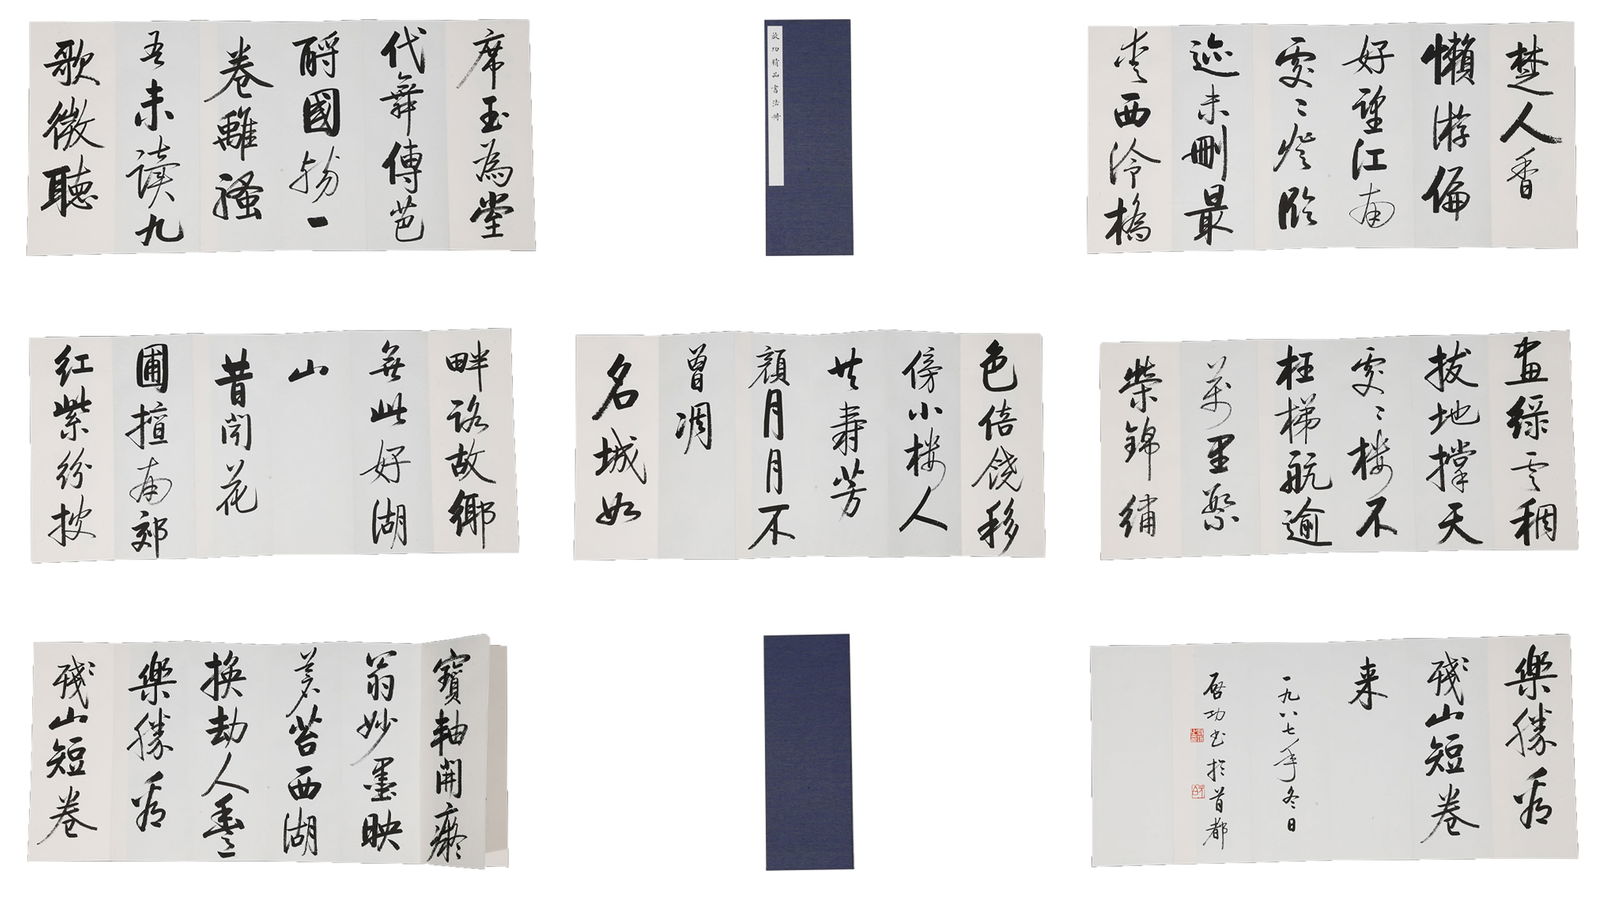 席玉為堂
代舞傳芭
酹國殤一
卷離騷
吾未读九
歌微聽
啟功精品書法册
楚人香
懶游偏
好望江南
處〻登臨
迹未刪最
愛西泠橋
畔路故鄉
無此好湖
山
昔聞花
圃擅南郊
紅紫紛披
色倍饒移
傍小楼人
共壽芳
顏月月不
曾凋
名城如
畫綠雲稠
拔地撐天
處〻楼不
枉梯航逾
萬里繁
榮錦繡
寶軸開癡
翁妙墨映
蒼苔西湖
換劫人
樂勝看
殘山短卷
樂勝看
殘山短卷
来
一九八七年冬日
啓功书於首都